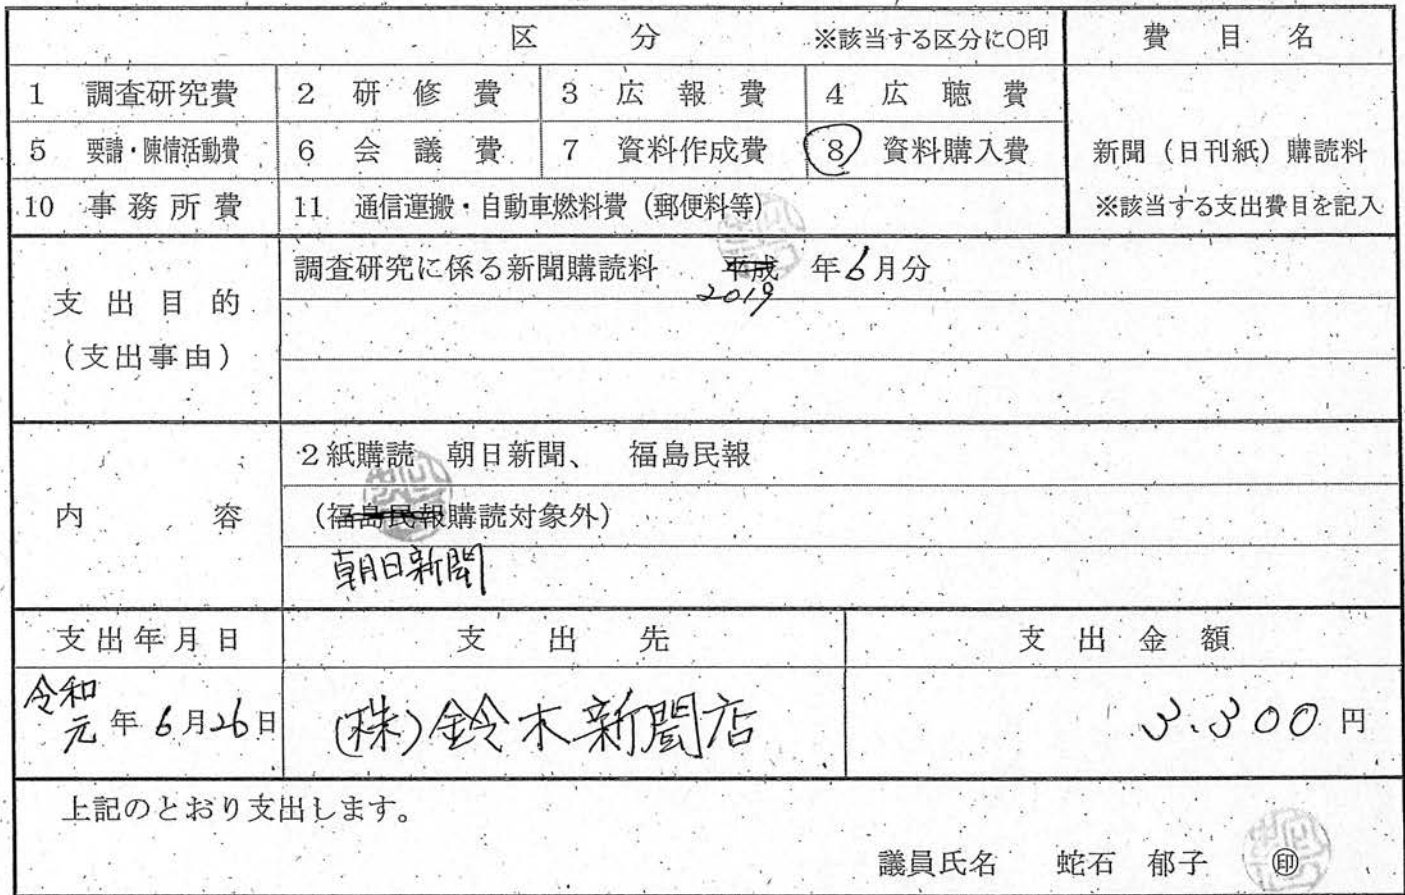 区 分 ※該当する区分に○印 費 目 名
1 調査研究費 2 研 修 費 3 広 報 費 4 広 聴 費
5 要請・陳情活動費 6 会 議 費 7 資料作成費 8 資料購入費 新聞(日刊紙)購読料
10 事 務 所 費 11 通信運搬・自動車燃料費(郵便料等) ※該当する支出費目を記入
支 出 目 的
(支出事由)
調査研究に係る新聞購読料 平成 年6月分
2019
内 容
2紙購読 朝日新聞、 福島民報
(福島民報購読対象外)
朝日新聞
支出年月日 支 出 先 支 出 金 額
令和
元年6月26日 (株)鈴木新聞店 3.300円
上記のとおり支出します。
議員氏名 蛇石 郁子 ㊞